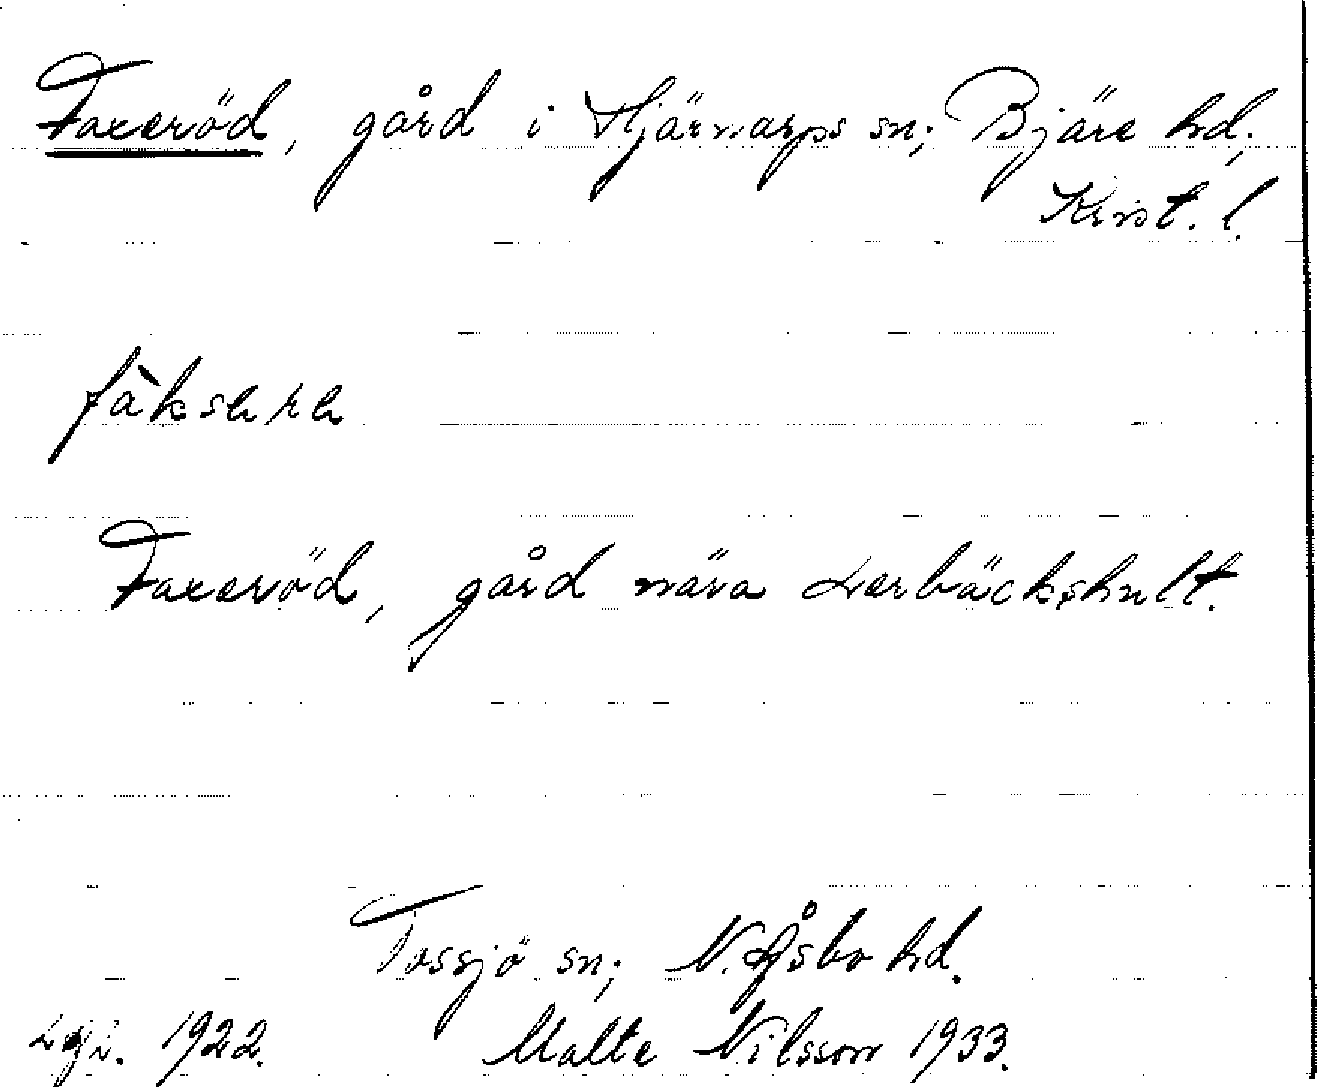 Faxeröd, gård i Hjärnarps sn; Bjäre hd;
Krist. l.
fàksara
Faxeröd, gård nära Lerbäckshult.
Tossjö sn; N. Åsbo hd.
1922. Malte Nilsson 1933.